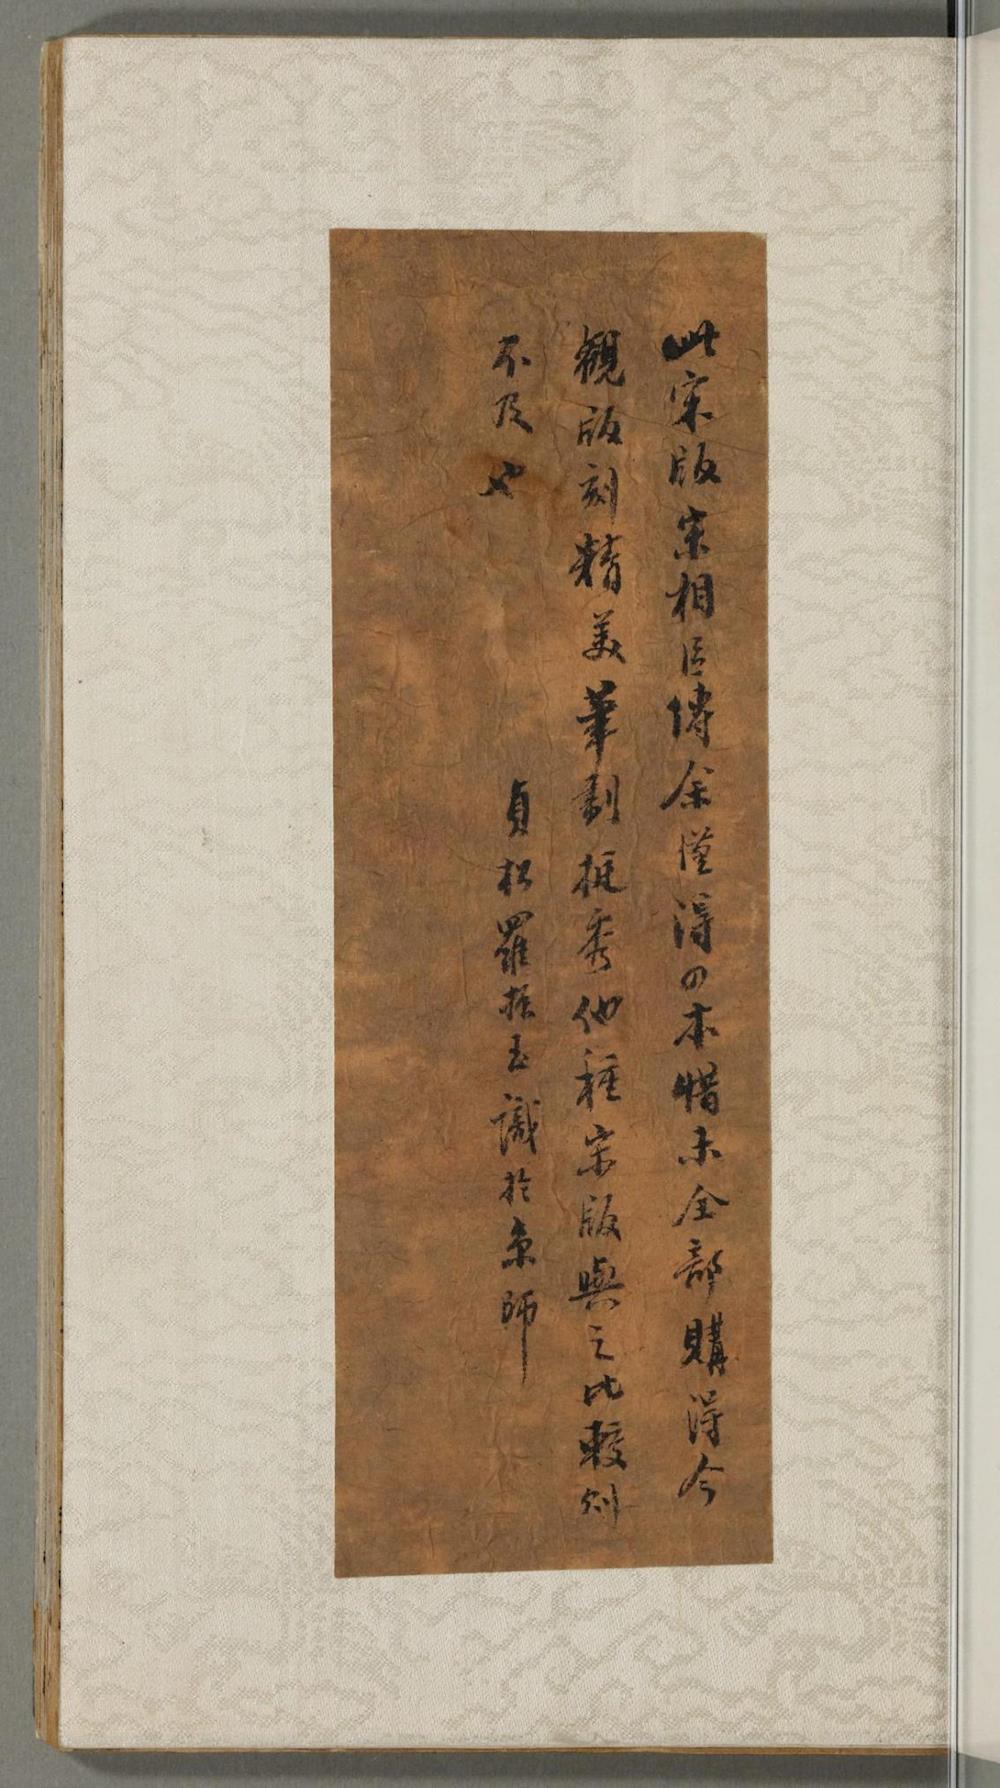 此宋版宋相臣傳余僅得四本惜未全部購得今
觀版刻精美筆劃挺秀他種宋版與之比較則
不及也
貞松羅振玉識於京師